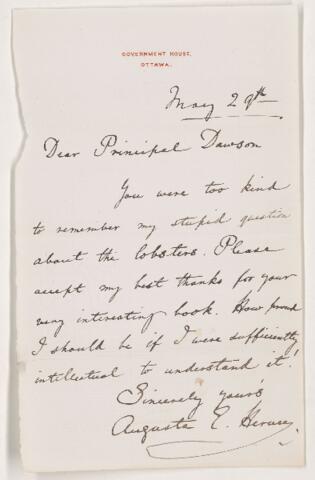 GOVERNMENT HOUSE,
OTTAWA.
May 29th
Dear Principal Dawson
You were too kind
to remember my stupid question
about the lobsters. Please
accept my best thanks for your
very interesting book. How proud
I should be if I were sufficiently
intellectual to understand it!
Sincerely yours
Augusta E. Hervey